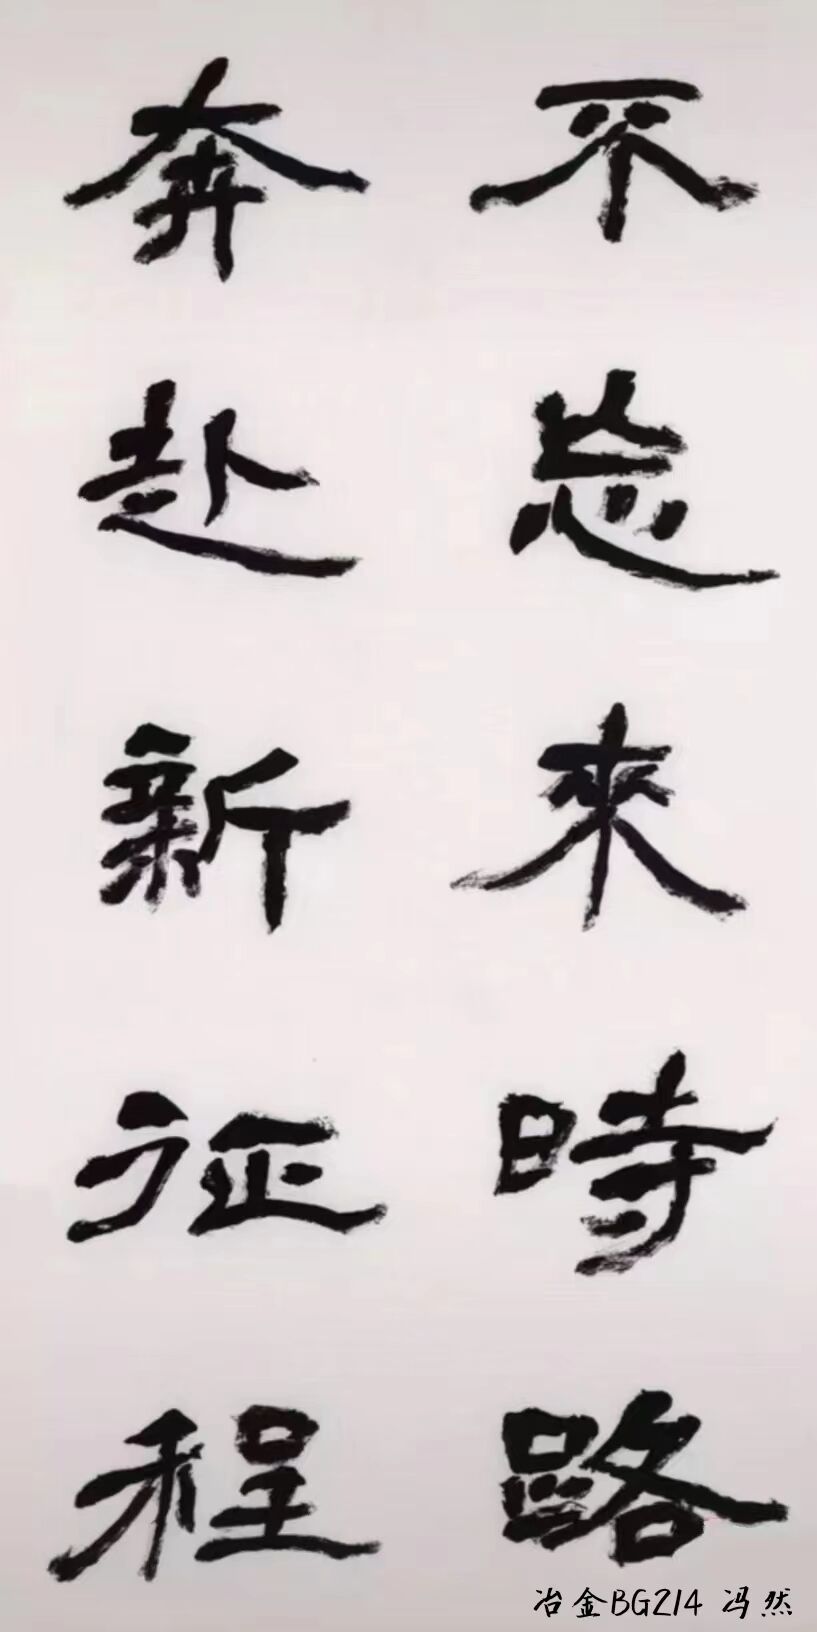 不忘來時路
奔赴新征程
冶金BG214 冯然